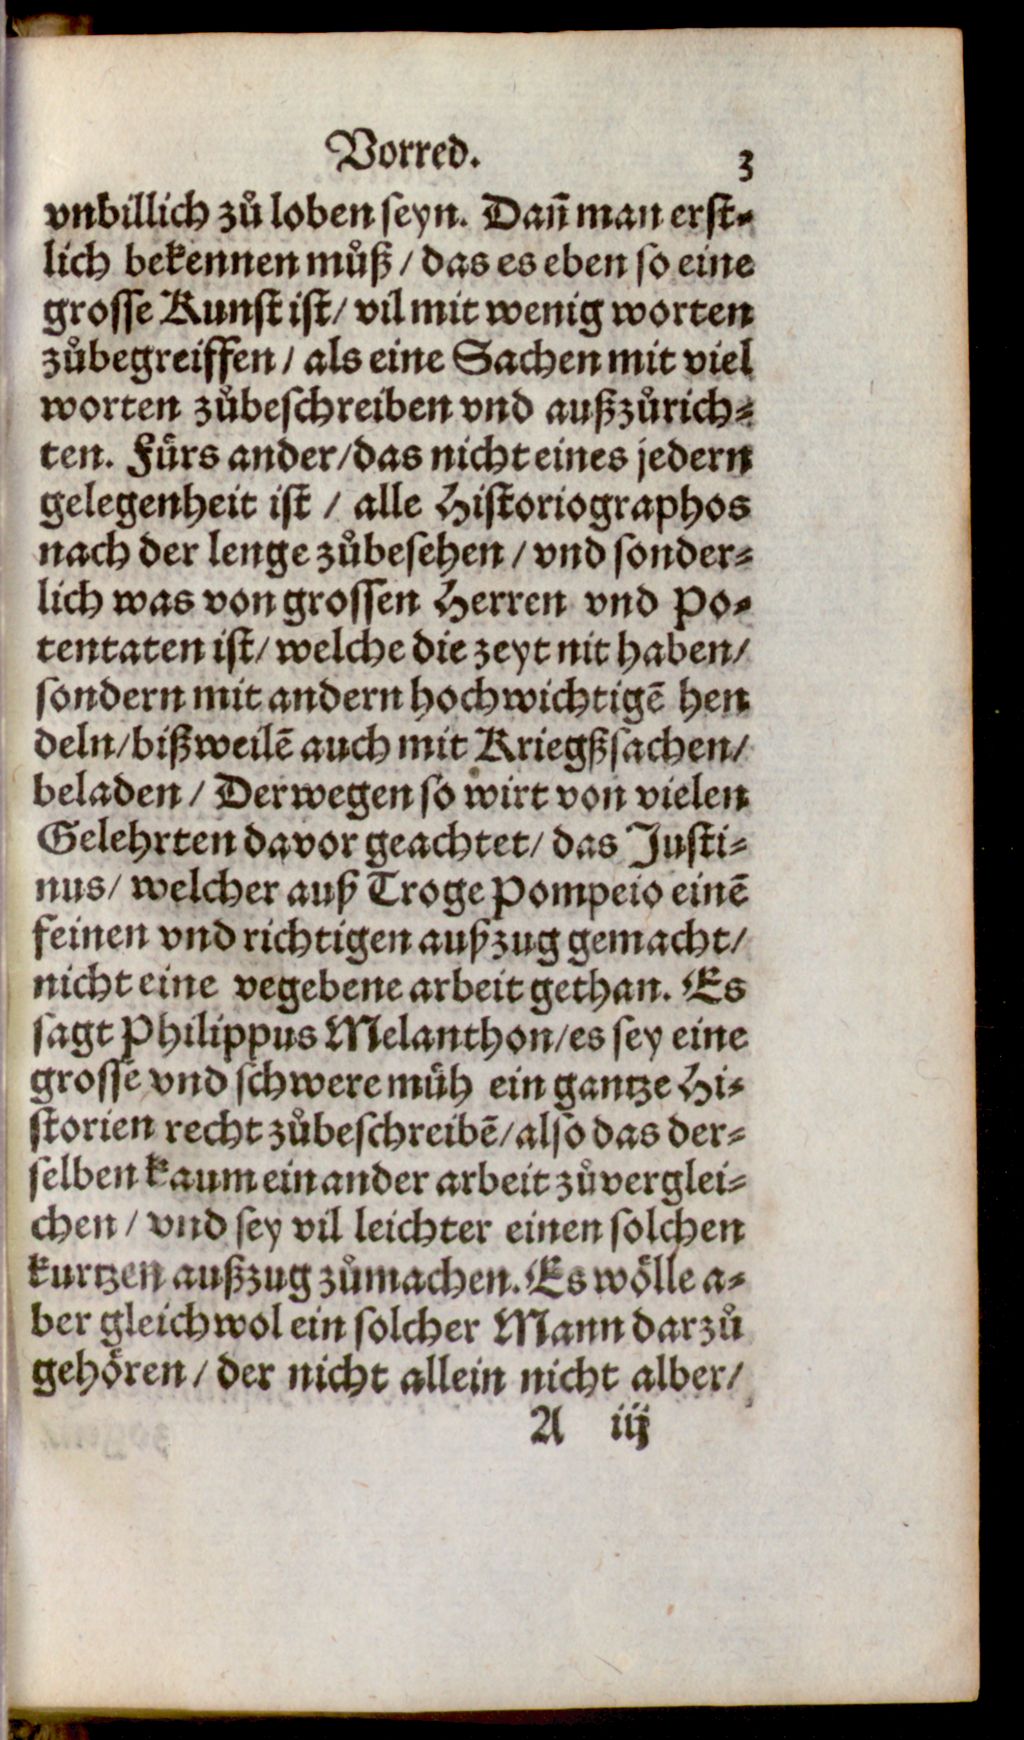 Vorred. 3
vnbillich zů loben seyn. Dañ man erst-
lich bekennen můß / das es eben so eine
grosse Kunst ist / vil mit wenig worten
zůbegreiffen / als eine Sachen mit viel
worten zůbeschreiben vnd außzůrich-
ten. Fürs ander / das nicht eines jedern
gelegenheit ist / alle Historiographos
nach der lenge zůbesehen / vnd sonder-
lich was von grossen Herren vnd Po-
tentaten ist / welche die zeyt nit haben /
sondern mit andern hochwichtigē hen
deln / bißweilē auch mit Kriegßsachen /
beladen / Derwegen so wirt von vielen
Gelehrten davor geachtet / das Justi-
nus / welcher auß Troge Pompeio einē
feinen vnd richtigen außzug gemacht /
nicht eine vegebene arbeit gethan. Es
sagt Philippus Melanthon / es sey eine
grosse vnd schwere müh ein gantze Hi-
storien recht zůbeschreibē / also das der-
selben kaum ein ander arbeit zůverglei-
chen / vnd sey vil leichter einen solchen
kurtzen außzug zůmachen. Es wölle a-
ber gleichwol ein solcher Mann darzů
gehören / der nicht allein nicht alber /
A iij